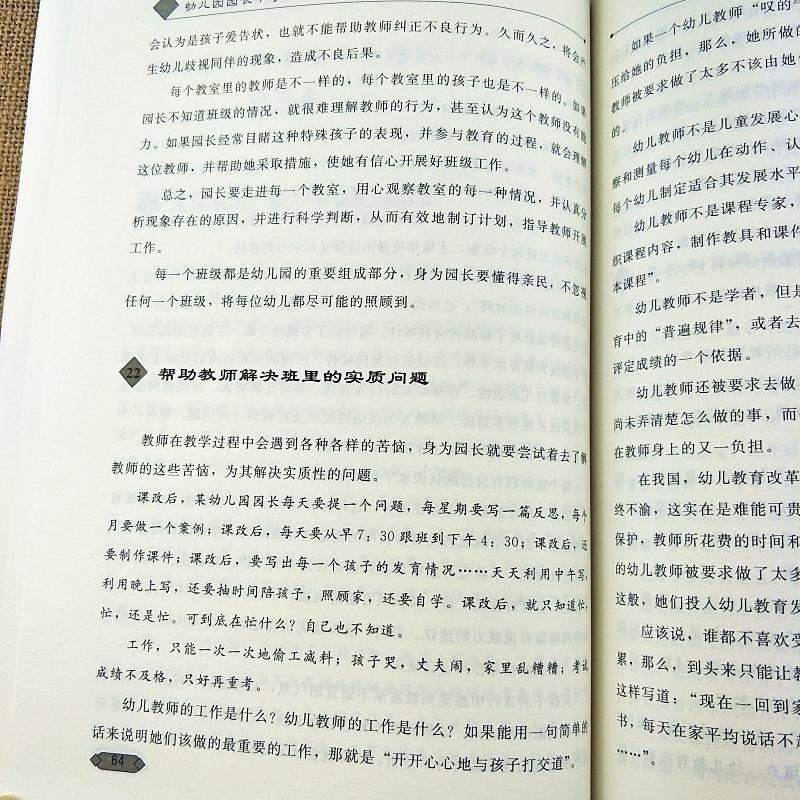 幼儿园园长
会认为是孩子爱告状，也就不能帮助教师纠正不良行为。久而久之，将会产
生幼儿歧视同伴的现象，造成不良后果。
每个教室里的教师是不一样的，每个教室里的孩子也是不一样的。如果
园长不知道班级的情况，就很难理解教师的行为，甚至认为这个教师没有能
力。如果园长经常目睹这种特殊孩子的表现，并参与教育的过程，就会理解
这位教师，并帮助她采取措施，使她有信心开展好班级工作。
总之，园长要走进每一个教室，用心观察教室的每一种情况，并认真分
析现象存在的原因，并进行科学判断，从而有效地制订计划，指导教师开展
工作。
每一个班级都是幼儿园的重要组成部分，身为园长要懂得亲民，不忽视
任何一个班级，将每位幼儿都尽可能的照顾到。
22 帮助教师解决班里的实质问题
教师在教学过程中会遇到各种各样的苦恼，身为园长就要尝试着去了解
教师的这些苦恼，为其解决实质性的问题。
课改后，某幼儿园园长每天要提一个问题，每星期要写一篇反思，每个
月要做一个案例；课改后，每天要从早7：30跟班到下午4：30；课改后，还
要制作课件；课改后，要写出每一个孩子的发育情况……天天利用中午写，
利用晚上写，还要抽时间陪孩子，照顾家，还要自学。课改后，就只知道忙，
忙，还是忙。可到底在忙什么？自己也不知道。
工作，只能一次一次地偷工减料；孩子哭，丈夫闹，家里乱糟糟；考试
成绩不及格，只好再重考。
幼儿教师的工作是什么？幼儿教师的工作是什么？如果能用一句简单的
话来说明她们该做的最重要的工作，那就是“开开心心地与孩子打交道”。
64
如果一个幼儿教师“叹的
压给她的负担，那么，她所做的
教师被要求做了太多不该由她
的。
幼儿教师不是儿童发展心
察和测量每个幼儿在动作、认
每个幼儿制定适合其发展水平
幼儿教师不是课程专家，
织课程内容，制作教具和课件
本课程”。
幼儿教师不是学者，但是
育中的“普遍规律”，或者去
评定成绩的一个依据。
幼儿教师还被要求去做
尚未弄清楚怎么做的事，而
在教师身上的又一负担。
在我国，幼儿教育改革
终不渝，这实在是难能可贵
保护，教师所花费的时间和
的幼儿教师被要求做了太多
这般，她们投入幼儿教育发
应该说，谁都不喜欢受
累，那么，到头来只能让教
这样写道：“现在一回到家
书，每天在家平均说话不超
……”。